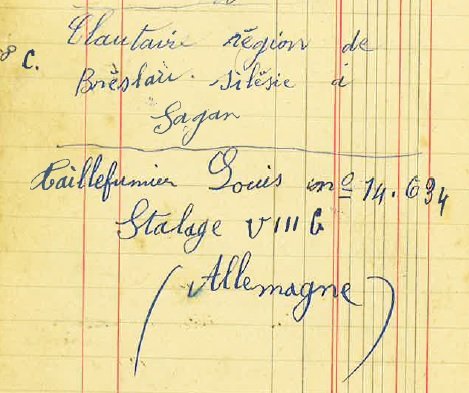 8 C.
Clautaire région de
Brèslari. silésie à
Sagan
Taillefumier Louis nº 14.634
Stalage VIII C
(Allemagne)